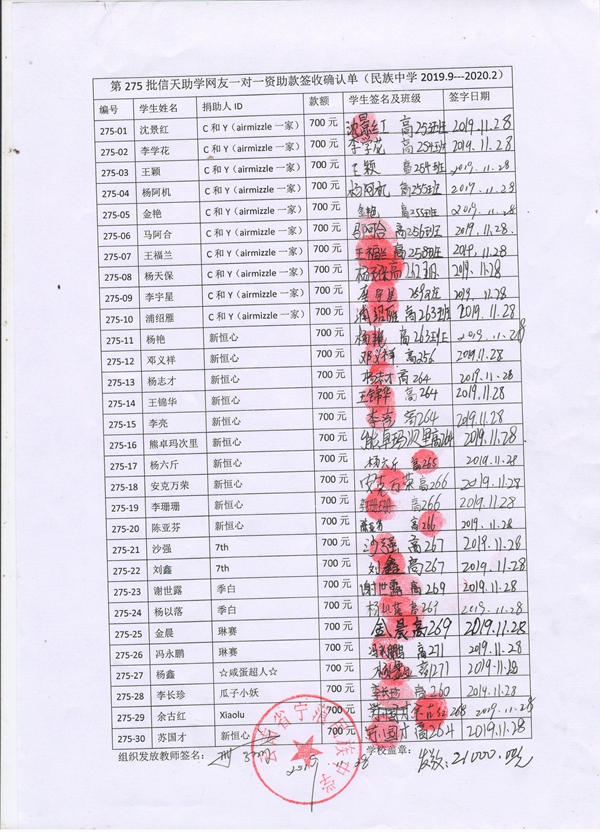 第 275 批信天助学网友一对一资助款签收确认单（民族中学 2019.9---2020.2）
编号 学生姓名 捐助人 ID 款额 学生签名及班级 签字日期
275-01 沈景红 C 和 Y（airmizzle 一家） 700 元 沈景红 高253班 2019.11.28
275-02 李学花 C 和 Y（airmizzle 一家） 700 元 李学花 高254班 2019.11.28
275-03 王颖 C 和 Y（airmizzle 一家） 700 元 王颖 高254班 2019.11.28
275-04 杨阿机 C 和 Y（airmizzle 一家） 700 元 杨阿机 高255班 2019.11.28
275-05 金艳 C 和 Y（airmizzle 一家） 700 元 金艳 高255班 2019.11.28
275-06 马阿合 C 和 Y（airmizzle 一家） 700 元 马阿合 高256班 2019.11.28
275-07 王福兰 C 和 Y（airmizzle 一家） 700 元 王福兰 高258班 2019.11.28
275-08 杨天保 C 和 Y（airmizzle 一家） 700 元 杨天保 高262班 2019.11.28
275-09 李宇星 C 和 Y（airmizzle 一家） 700 元 李宇星 2019.11.28
275-10 浦绍雁 C 和 Y（airmizzle 一家） 700 元 浦绍雁 高263班 2019.11.28
275-11 杨艳 新恒心 700 元 杨艳 高263班 2019.11.28
275-12 邓义祥 新恒心 700 元 邓义祥 高256 2019.11.28
275-13 杨志才 新恒心 700 元 杨志才 高264 2019.11.28
275-14 王锦华 新恒心 700 元 王锦华 高264 2019.11.28
275-15 李亮 新恒心 700 元 李亮 高264 2019.11.28
275-16 熊卓玛次里 新恒心 700 元 熊卓玛次里 高264 2019.11.28
275-17 杨六斤 新恒心 700 元 杨六斤 高265 2019.11.28
275-18 安克万荣 新恒心 700 元 安克万荣 高266 2019.11.28
275-19 李珊珊 新恒心 700 元 李珊珊 高266 2019.11.28
275-20 陈亚芬 新恒心 700 元 陈亚芬 高266 2019.11.28
275-21 沙强 7th 700 元 沙强 高267 2019.11.28
275-22 刘鑫 7th 700 元 刘鑫 高267 2019.11.28
275-23 谢世露 季白 700 元 谢世露 高269 2019.11.28
275-24 杨以落 季白 700 元 杨以落 高269 2019.11.28
275-25 金晨 琳赛 700 元 金晨 高269 2019.11.28
275-26 冯永鹏 琳赛 700 元 冯永鹏 高271 2019.11.28
275-27 杨鑫 ☆咸蛋超人☆ 700 元 杨鑫 高271 2019.11.28
275-28 李长珍 瓜子小妖 700 元 李长珍 高260 2019.11.28
275-29 余古红 Xiaolu 700 元 余古红 268 2019.11.28
275-30 苏国才 新恒心 700 元 苏国才 高264 2019.11.28
组织发放教师签名： 学校盖章： 21000.00元
族中学